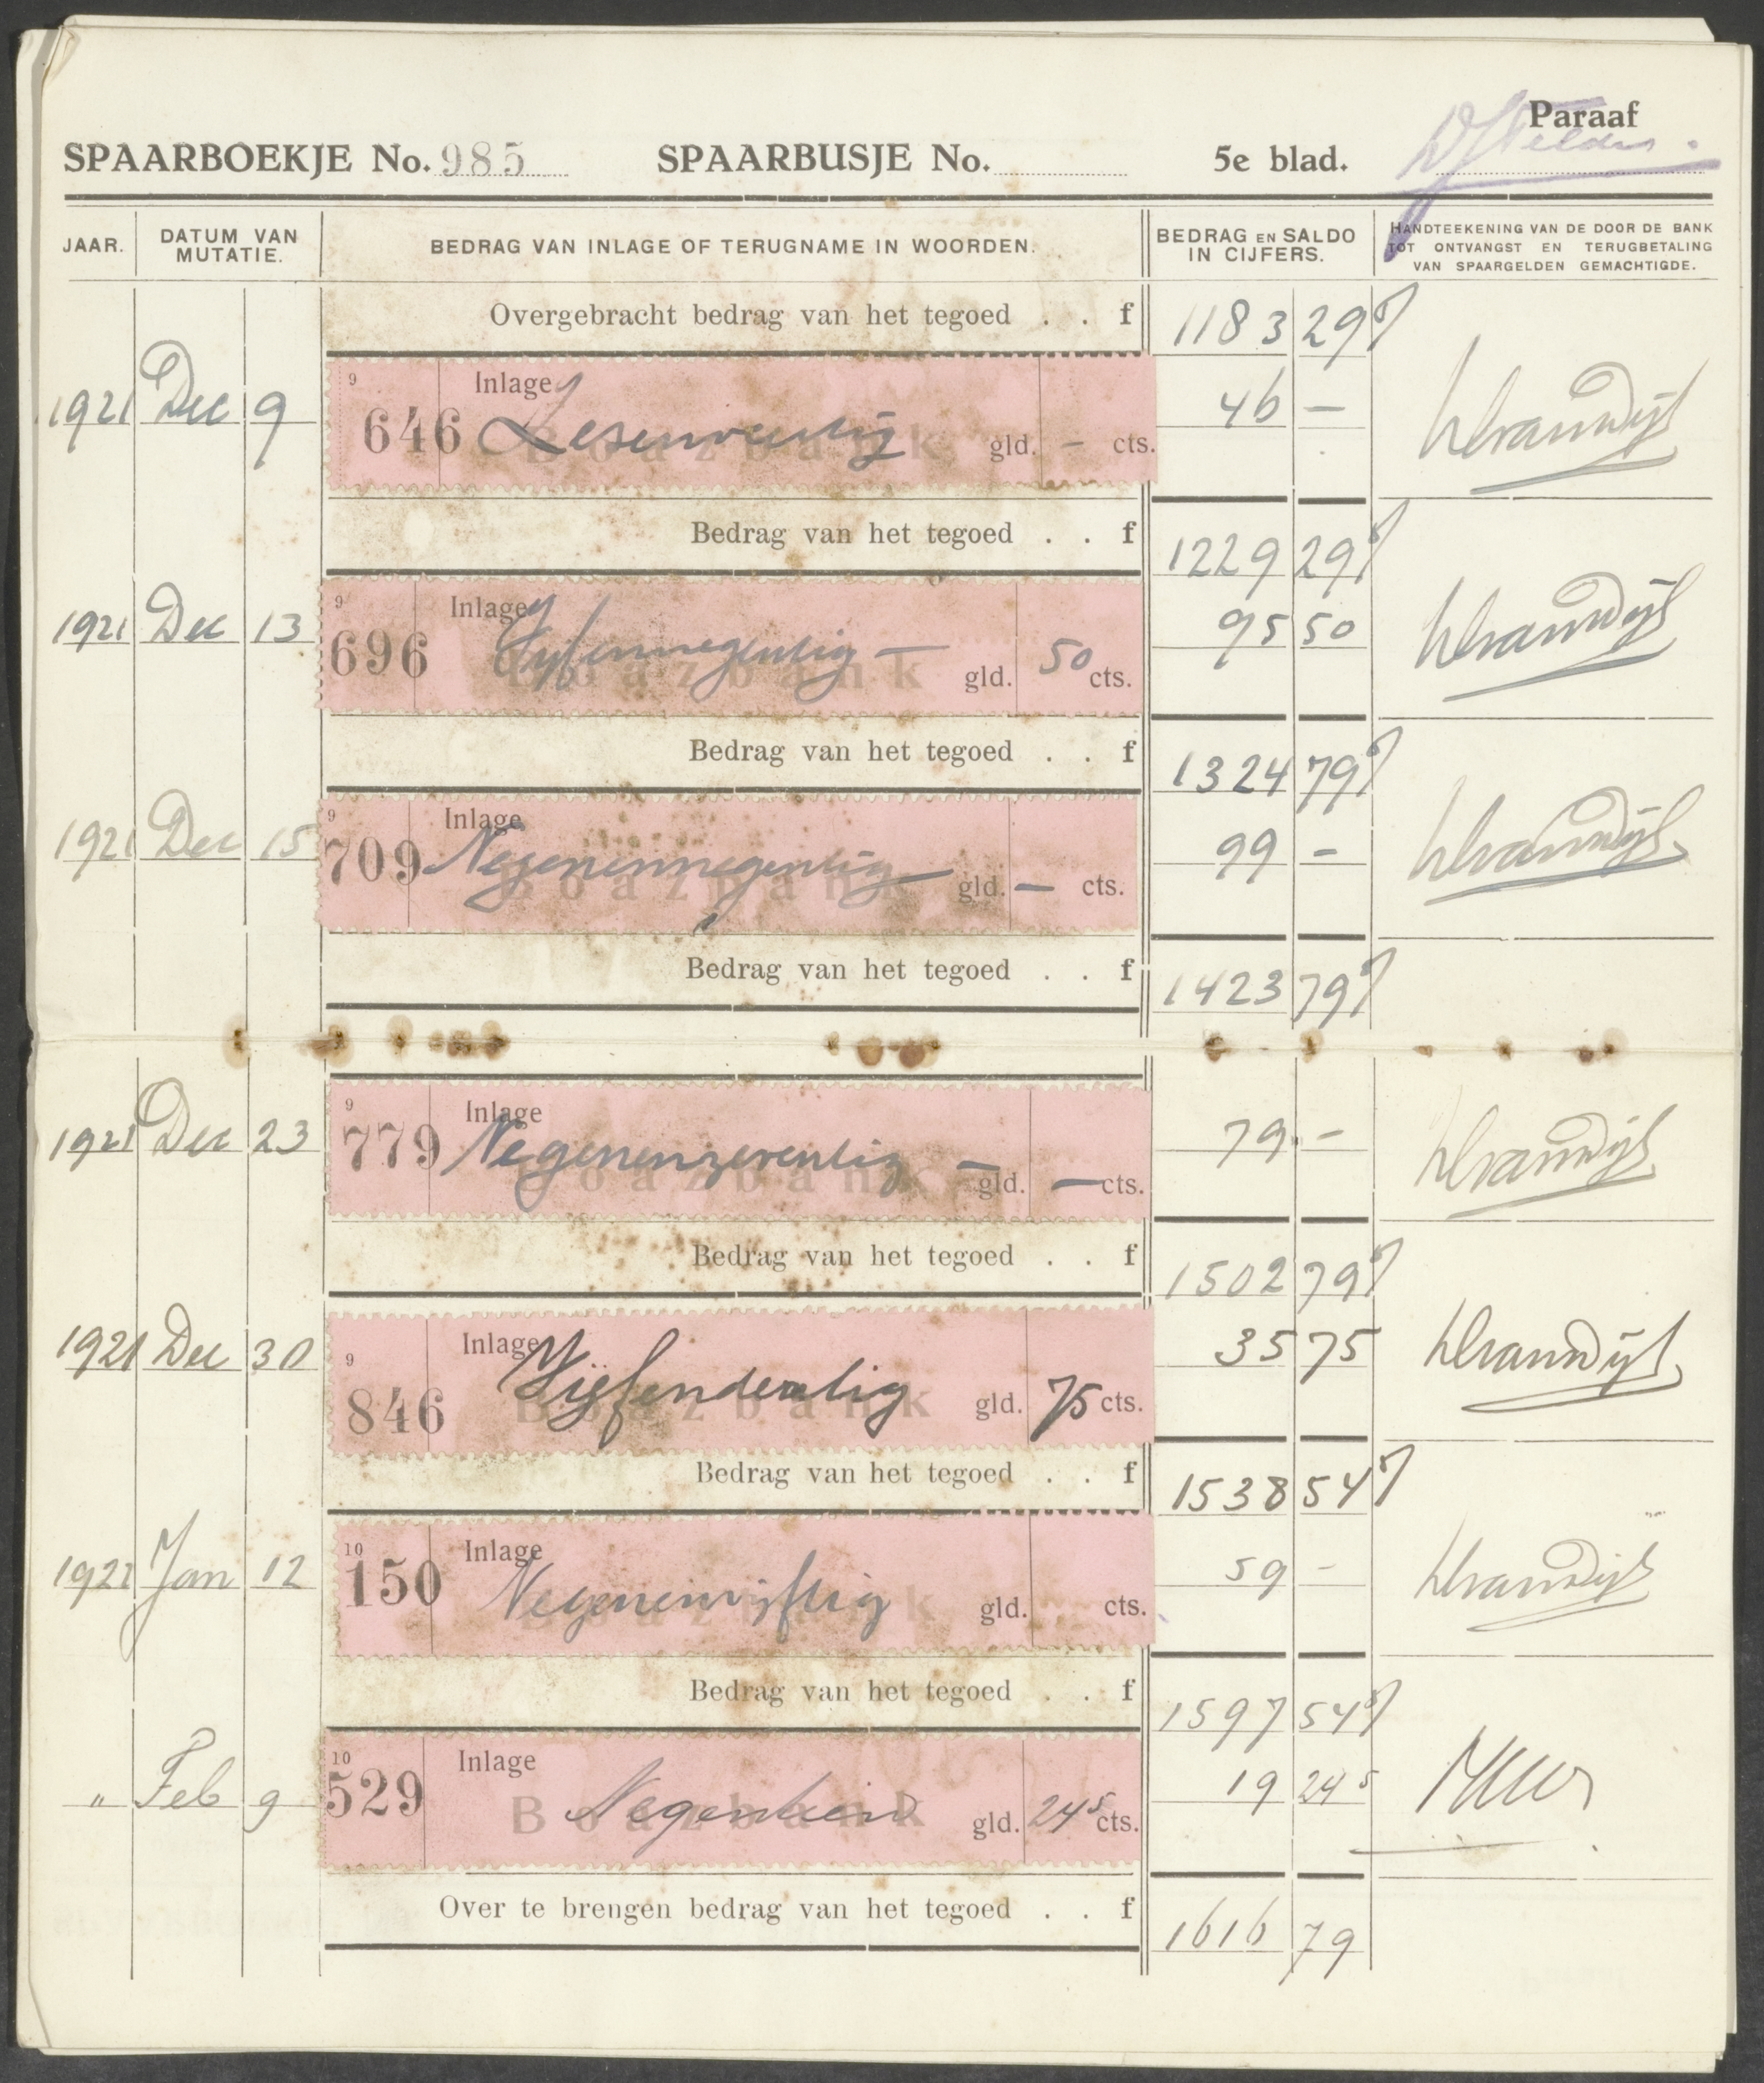 Paraaf
SPAARBOEKJE No. 985 SPAARBUSJE No. 5e blad.
JAAR. DATUM VAN MUTATIE. BEDRAG VAN INLAGE OF TERUGNAME IN WOORDEN. BEDRAG EN SALDO IN CIJFERS. HANDTEEKENING VAN DE DOOR DE BANK TOT ONTVANGST EN TERUGBETALING VAN SPAARGELDEN GEMACHTIGDE.
Overgebracht bedrag van het tegoed . . f 1183 29⁵
1921 Dec 9 9 646 Inlage Zesenveertig Boazbank gld. - cts. 46 —
Bedrag van het tegoed . . f 1229 29⁵
1921 Dec 13 9 696 Inlage Vyfennegentig — Boazbank gld. 50 cts. 95 50
Bedrag van het tegoed . . f 1324 79⁵
1921 Dec 15 9 709 Inlage Negenennegentig — Boazbank gld. — cts. 99 -
Bedrag van het tegoed . . f 1423 79⁵
1921 Dec 23 9 779 Inlage Negenenzeventig — Boazbank gld. — cts. 79 -
Bedrag van het tegoed . . f 1502 79⁵
1921 Dec 30 9 846 Inlage Vijfendertig Boazbank gld. 75 cts. 35 75
Bedrag van het tegoed . . f 1538 54⁵
1922 Jan 12 10 150 Inlage Negenenvijftig Boazbank gld. cts. 59 -
Bedrag van het tegoed . . f 1597 54⁵
" Feb 9 10 529 Inlage Negentien Boazbank gld. 24⁵ cts. 19 24⁵
Over te brengen bedrag van het tegoed . . f 1616 79